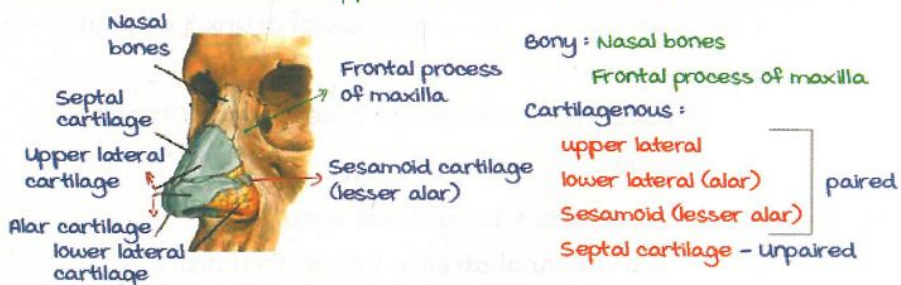 Nasal
bones
Septal
cartilage
Upper lateral
cartilage
Alar cartilage
lower lateral
cartilage
Frontal process
of maxilla
Sesamoid cartilage
(lesser alar)
Bony : Nasal bones
Frontal process of maxilla
Cartilagenous :
upper lateral
lower lateral (alar)
Sesamoid (lesser alar)
paired
Septal cartilage - Unpaired